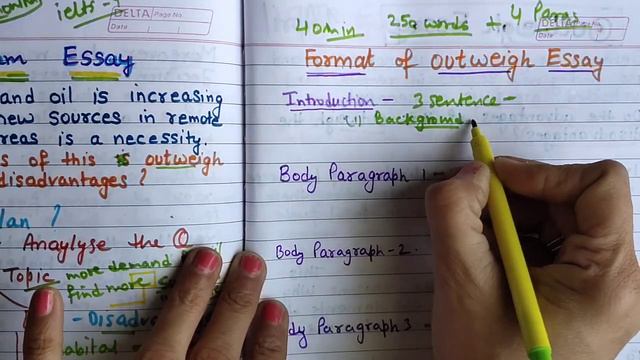 ielts-
DELTA Page No.
Date
am Essay
and oil is increasing
new sources in remote
reas is a necessity.
s of this is outweigh
disadvantages?
lan?
Anaylyse the Q
Topic more demand
find more
- Disadva
habital -
40min 250 words + 4 Para
DELTA
Date
Format of outweigh Essay
Introduction - 3 sentence -
(1) Background
Body Paragraph 1 -
Body Paragraph - 2.
dy Paragraph 3 -